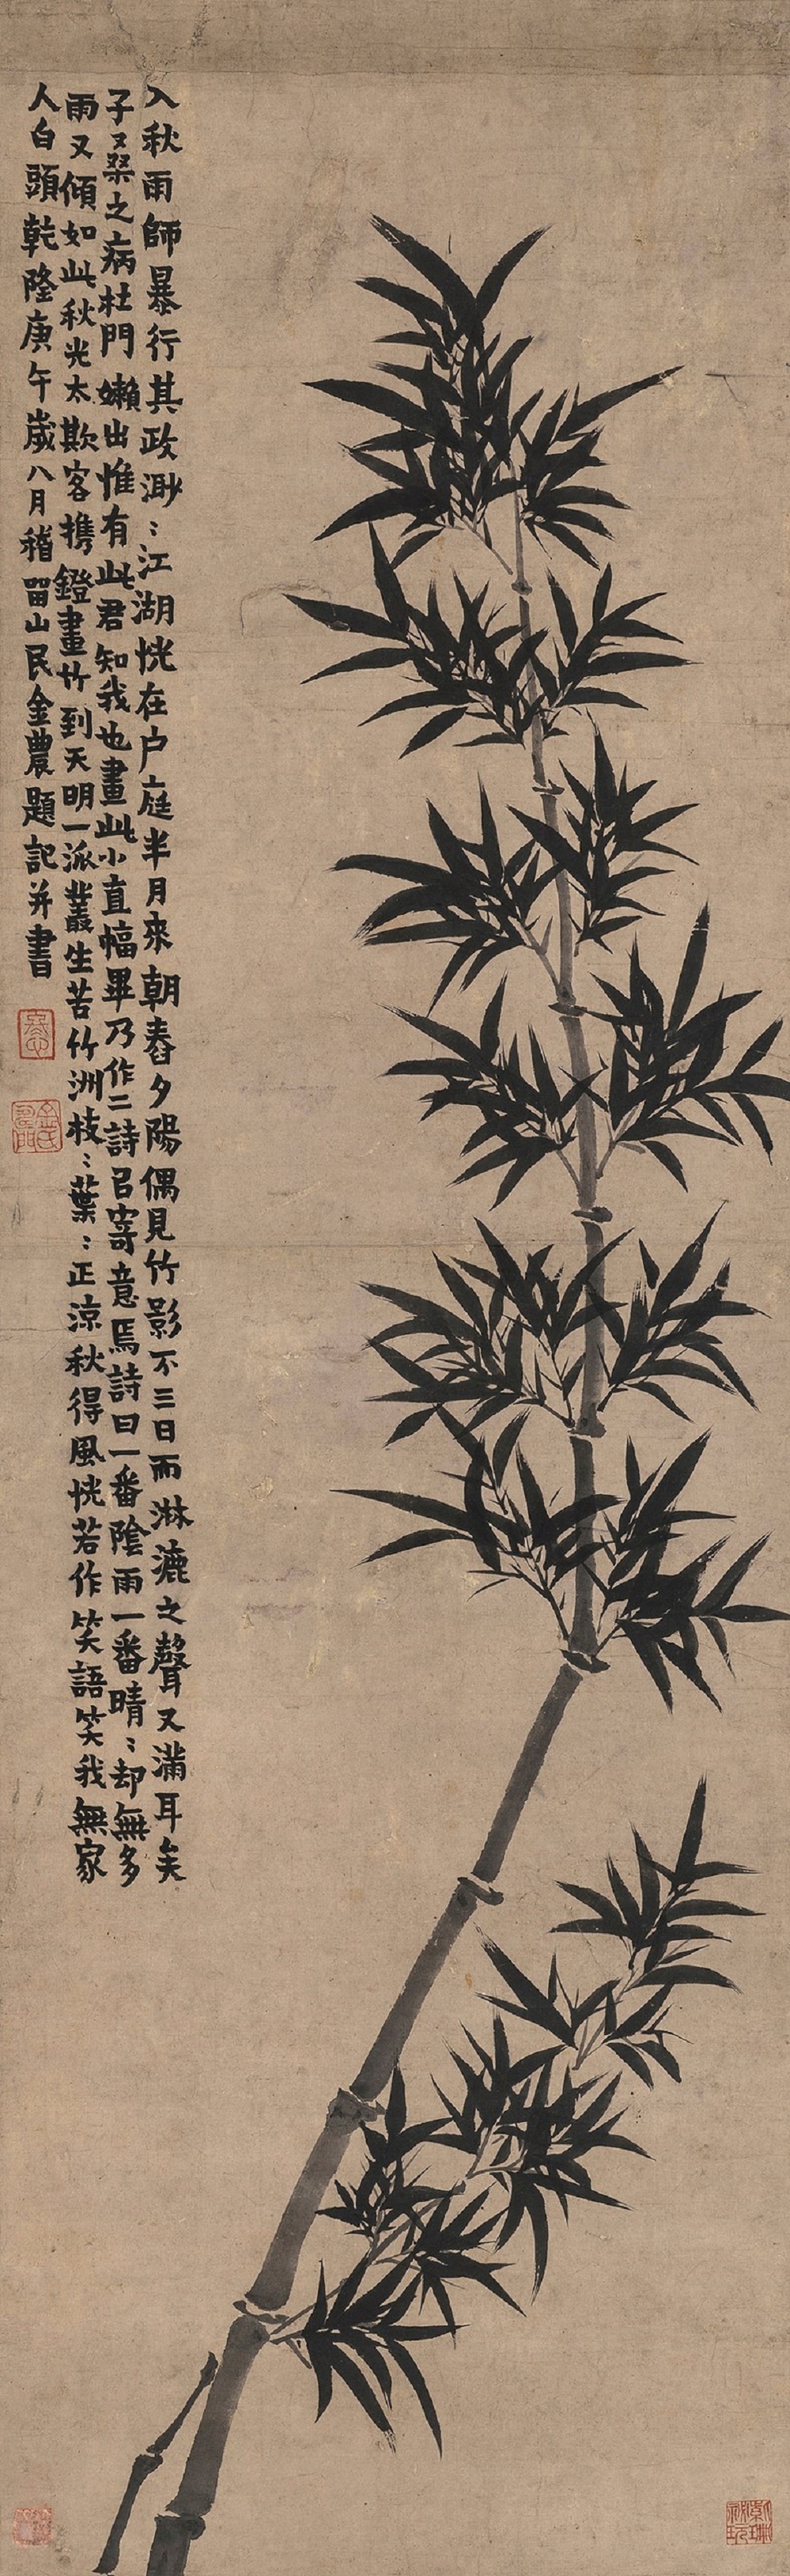 入秋雨師暴行其政渺〻江湖恍在户庭半月來朝春夕陽偶見竹影不三日而淋漉之聲又滿耳矣
子又桑之病杜門嬾出惟有此君知我也畫此小直幅畢乃作二詩㠯寄意焉詩曰一番陰雨一番晴〻却無多
雨又傾如此秋光太欺客攜鐙畫竹到天明一派叢生苦竹洲枝〻葉〻正涼秋得風恍若作笑語笑我無家
人白頭乾隆庚午歲八月稽留山民金農題記并書